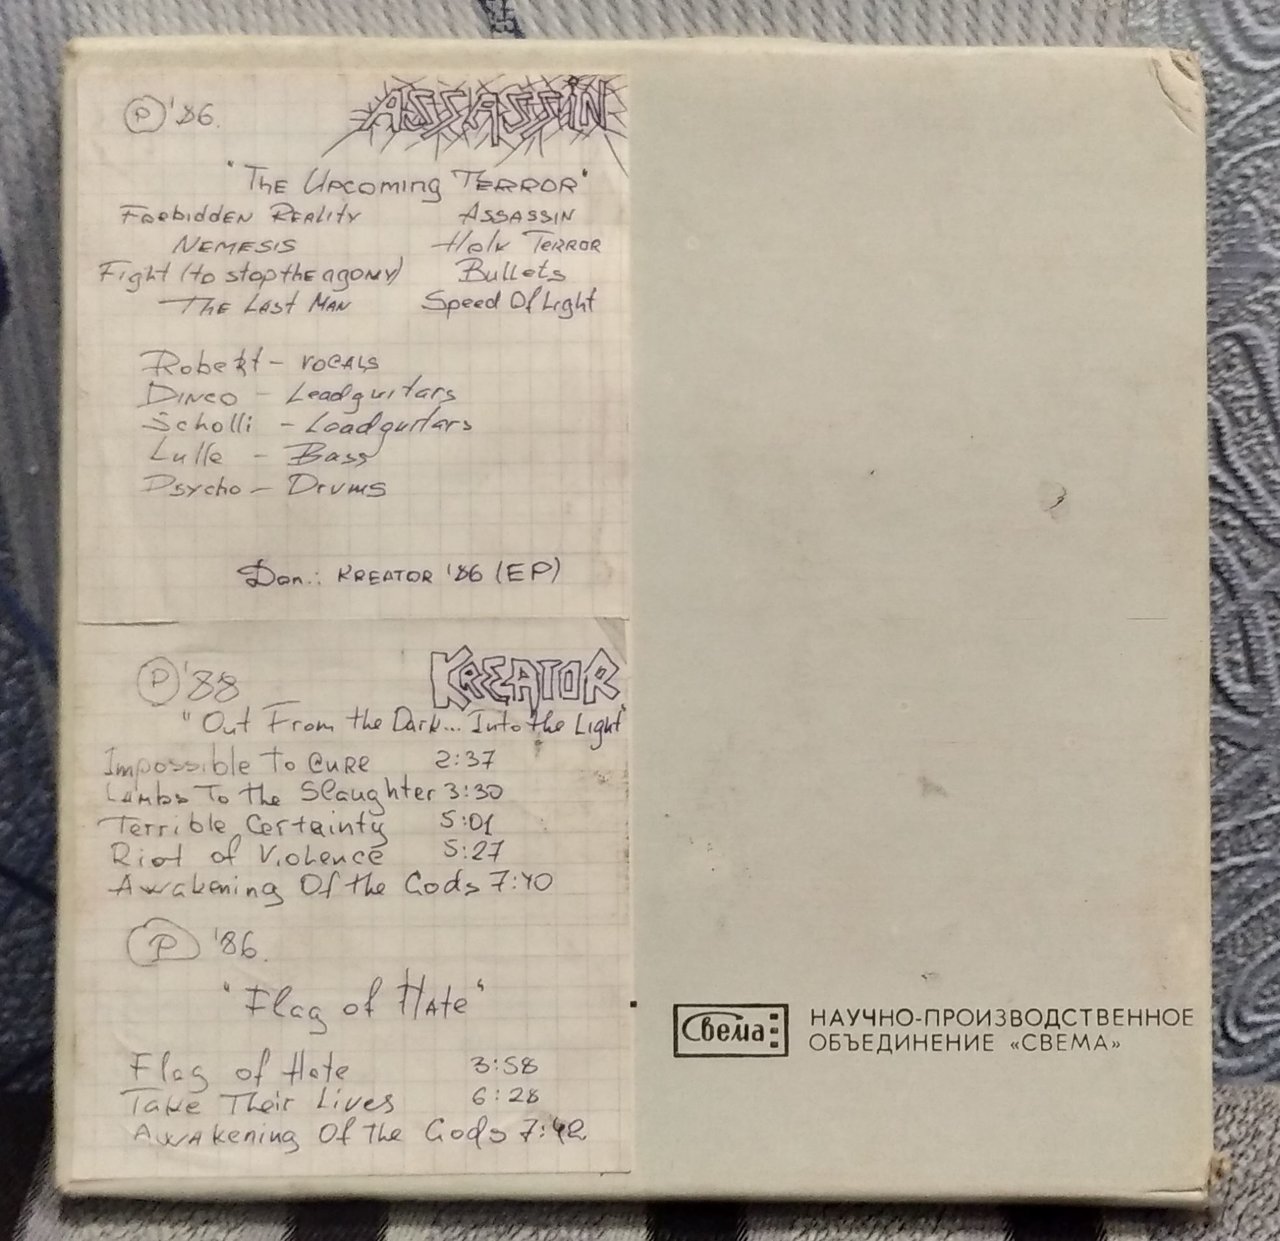 Ⓟ '86. ASSASSIN
"The Upcoming Terror"
Forbidden Reality Assassin
Nemesis Holy Terror
Fight (to stop the agony) Bullets
The Last Man Speed Of Light
Robert – vocals
Dinco – Leadguitars
Scholli – Leadguitars
Lulle – Bass
Psycho – Drums
Don.: KREATOR '86 (EP)
Ⓟ '88 KREATOR
"Out From the Dark... Into the Light"
Impossible To Cure 2:37
Lambs To the Slaughter 3:30
Terrible Certainty 5:01
Riot of Violence 5:27
Awakening Of the Gods 7:40
Ⓟ '86.
"Flag of Hate"
Flag of Hate 3:58
Take Their Lives 6:28
Awakening Of The Gods 7:42
Свема НАУЧНО-ПРОИЗВОДСТВЕННОЕ
ОБЪЕДИНЕНИЕ «СВЕМА»